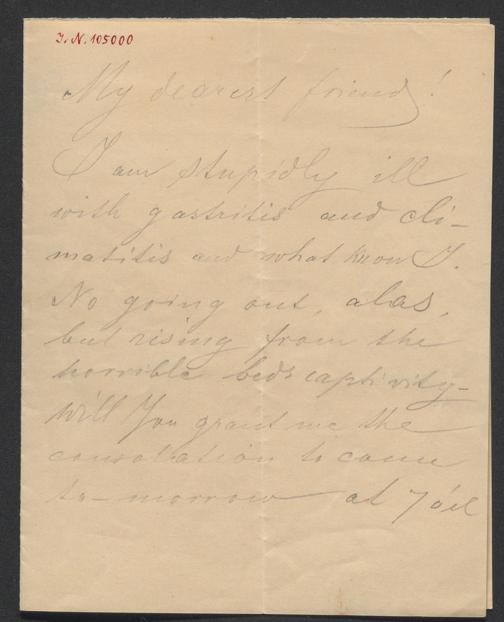 I. N. 105000
My dearest friend!
I am stupidly ill
with gastritis and cli-
matitis and what know I.
No going out, alas,
but rising from the
horrible beds captivity-
will You grant me the
consolation to come
to-morrow at 7 o'cl